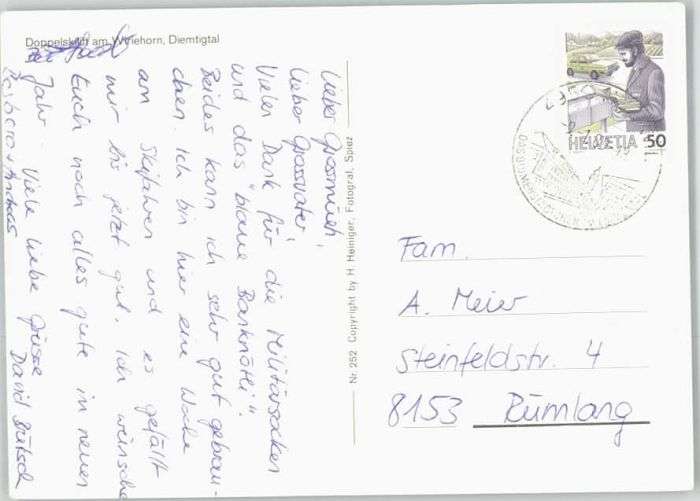 Doppelskilift am Wiriehorn, Diemtigtal
Liebe Grossmueti,
Lieber Grossvater,
Vielen Dank für die Militärsocken
und das "blaue Banknötli"
Beides kann ich sehr gut gebrau-
chen. Ich bin hier eine Woche
am Skifahren und es gefällt
mir bis jetzt gut. Ich wünsche
Euch noch alles gute im neuen
Jahr. Viele liebe Grüsse
David
Barbara + Andreas
Nr. 252 Copyright by H. Heiniger, Fotograf, Spiez
HELVETIA 50
Fam.
A. Meier
Steinfeldstr. 4
8153 Rümlang